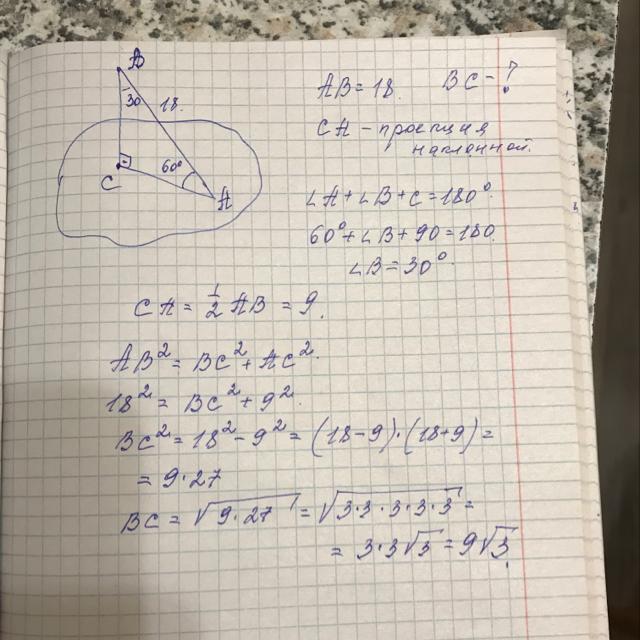 B
30
18.
60°
C
A
AB = 18. BC - ?
CA - проекция
наклонной.
∠A + ∠B + C = 180°.
60° + ∠B + 90 = 180.
∠B = 30°.
CA = 1/2 AB = 9.
AB² = BC² + AC².
18² = BC² + 9².
BC² = 18² - 9² = (18-9)·(18+9) =
= 9·27
BC = √9·27 = √3·3·3·3·3 =
= 3·3√3 = 9√3.